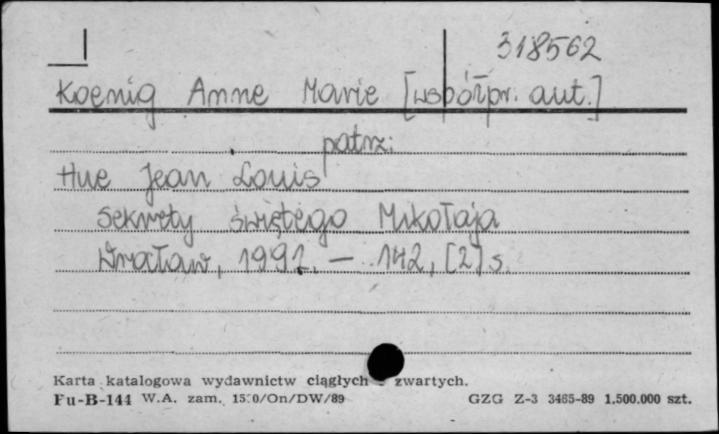 318562
Koenig Anne Marie [współpr. aut.]
patrz:
Hue Jean Louis
Sekrety świętego Mikołaja
Wrocław, 1992. – 142, [2] s.
Karta katalogowa wydawnictw ciągłych - zwartych.
Fu-B-144 W.A. zam. 1510/On/DW/89 GZG Z-3 3465-89 1.500.000 szt.